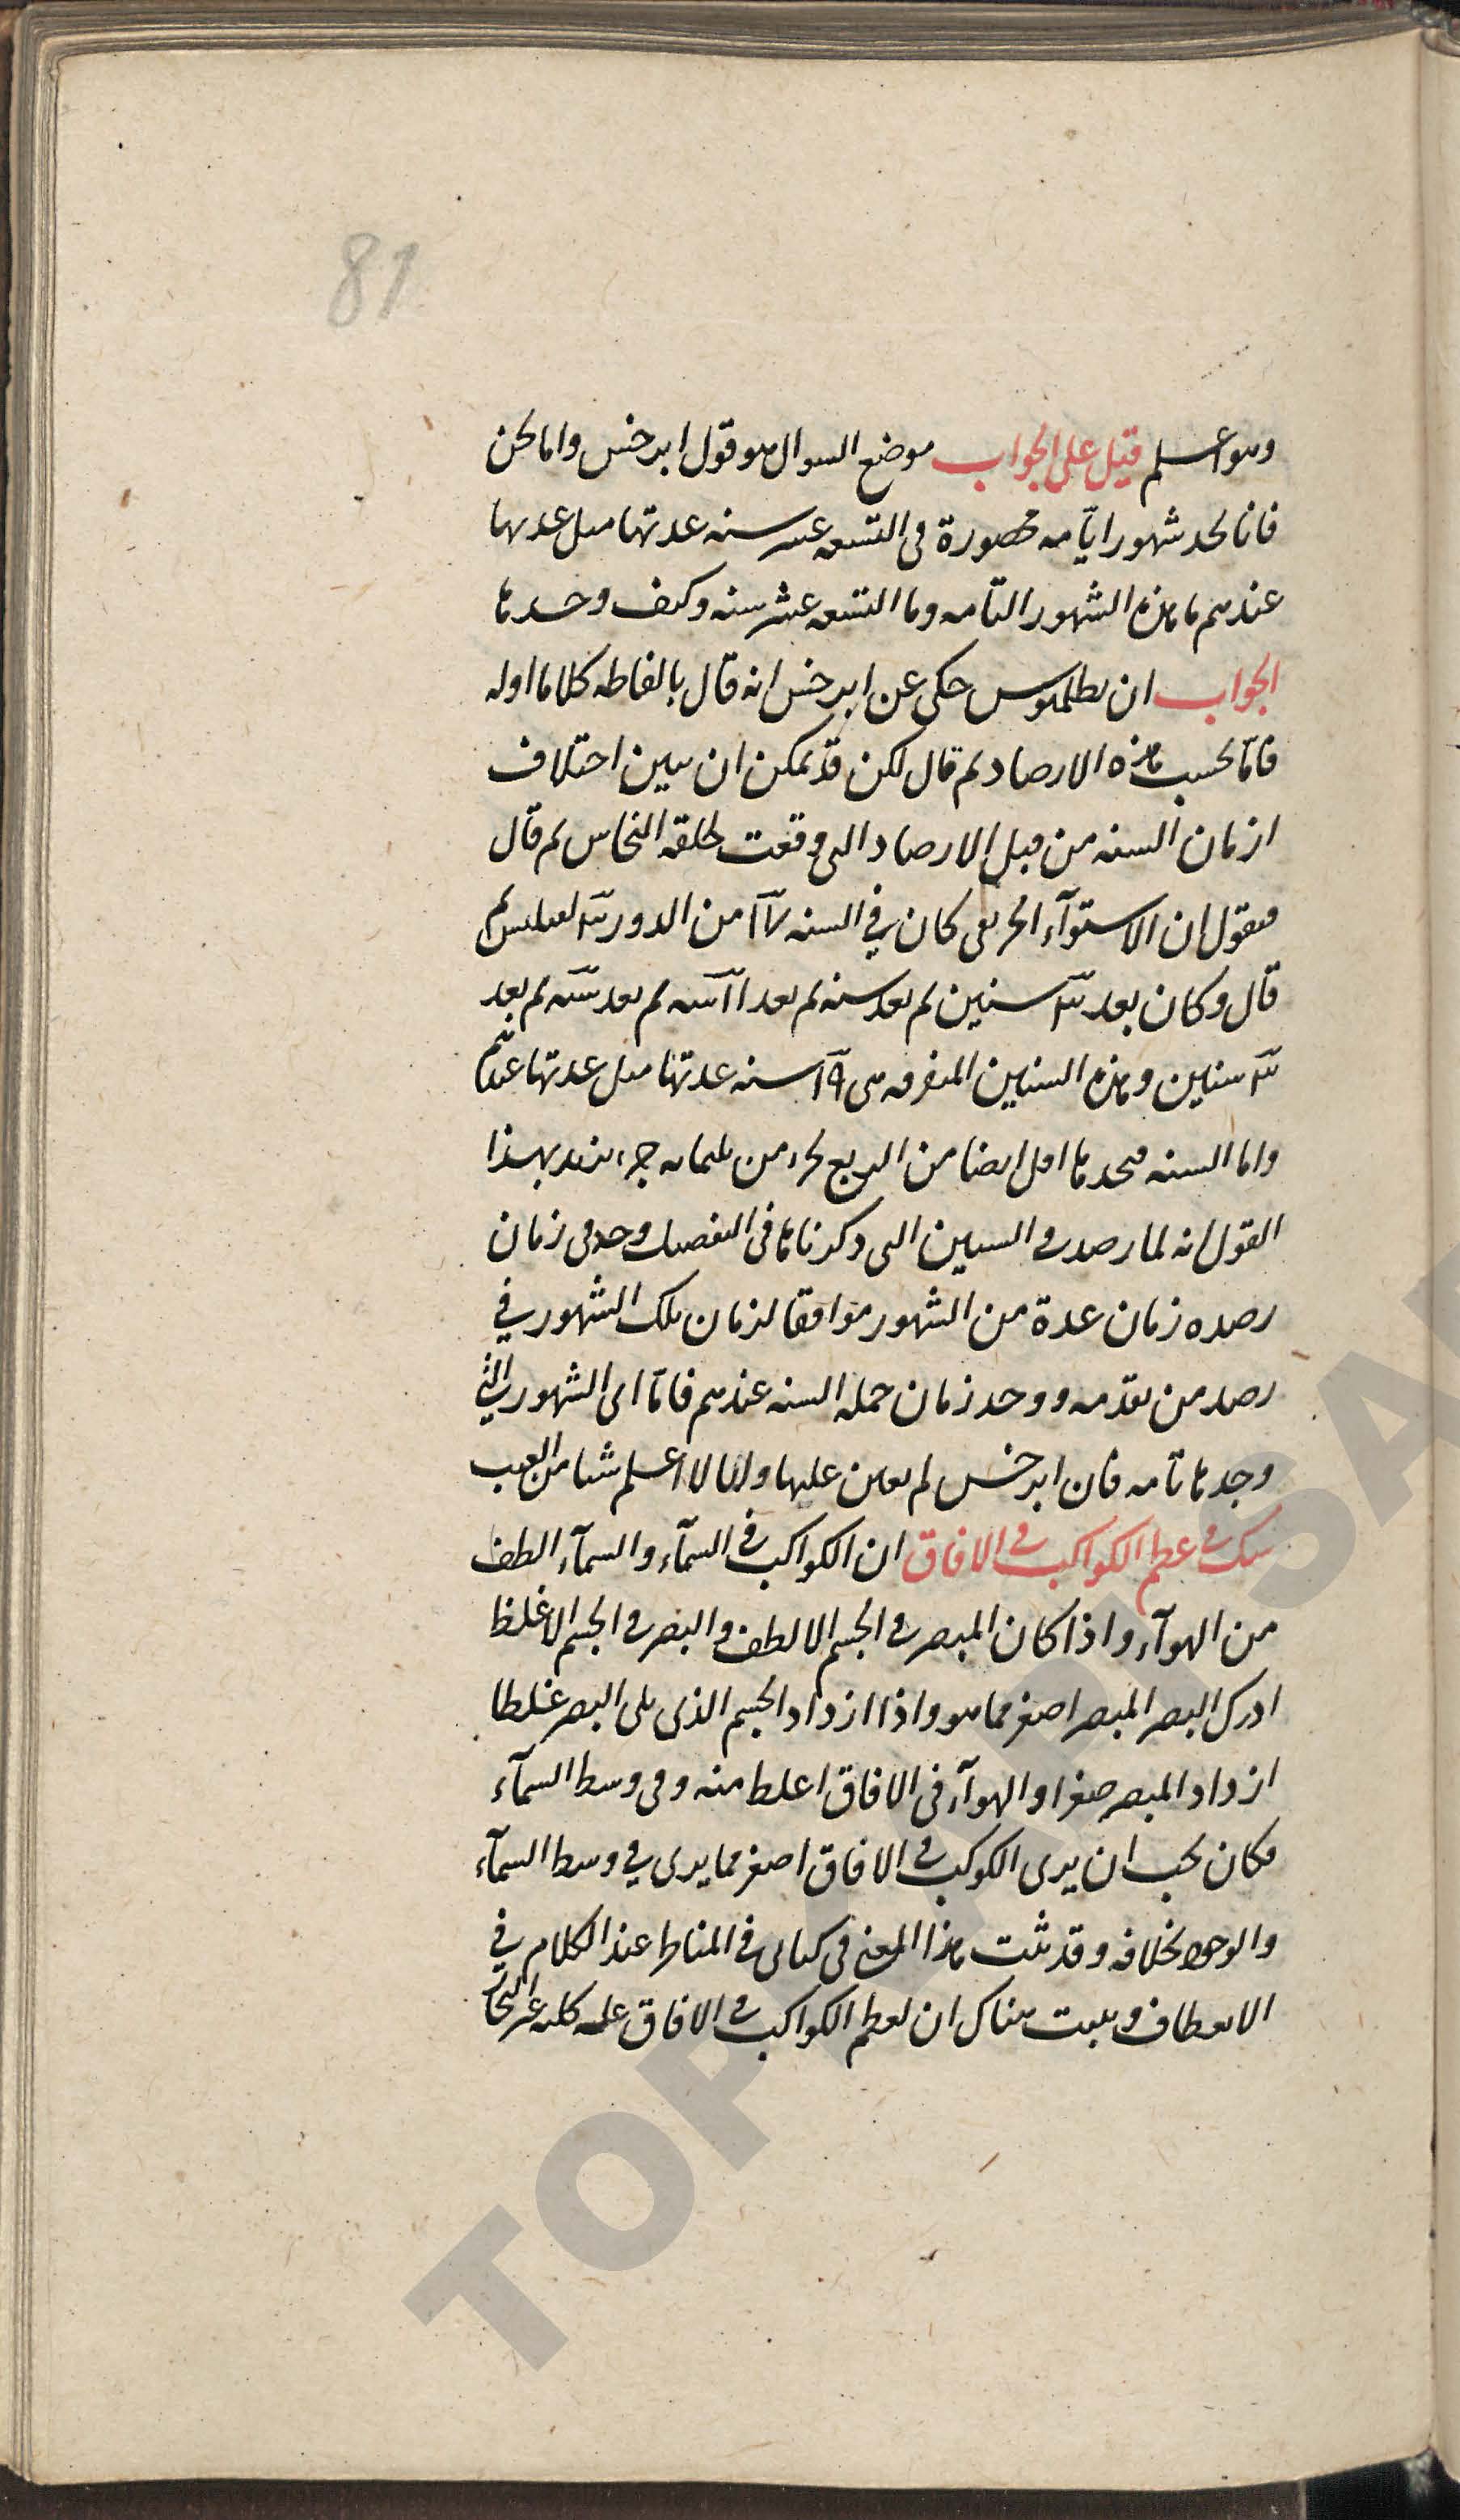 81
وهو اعلم قيل على الجواب موضع السوال هو قول ابرخس واما نحن
فانا نجد شهورا تامه محصورة فى التسعه عشر سنه عدتها مثل عدتها
عندهم ما هذه الشهور التامه وما التسعه عشر سنه وكيف وجدها
الجواب ان بطلميوس حكى عن ابرخس انه قال بالفاظه كلاما اوله
فاما بحسب هذه الارصاد ثم قال لكن قد يمكن ان يتبين اختلاف
ازمان السنه من قبل الارصاد التى وقعت بحلقه النحاس ثم قال
فيقول ان الاستوآء الخريفى كان في السنه ١٧ من الدور ٣ لفيلبس ثم
قال وكان بعد ٣ سنين ثم بعد سنه ثم بعد ١١ سنه ثم بعد سنه ثم بعد
٣ سنين وهذه السنين المتفرقه هى ١٩ سنه عدتها مثل عدتها عندهم
واما السنه فنجدها اقل ايضا من الربع بجزء من ثلثمائه جزء يريد بهذا
القول انه لما رصد فى السنين التى ذكرناها فى التفصيل وجد فى زمان
رصده زمان عدة من الشهور موافقا لزمان تلك الشهور في
رصد من تقدمه ووجد زمان جمله السنه عندهم فاما اى الشهور التى
وجدها تامه فان ابرخس لم يعين عليها وانا لا اعلم شيا من الغيب
شك فى عظم الكواكب فى الافاق ان الكواكب فى السمآء والسمآء الطف
من الهوآء واذا كان المبصر فى الجسم الالطف والبصر فى الجسم الاغلظ
ادرك البصر المبصر اصغر مما هو واذا ازداد الجسم الذى يلى البصر غلظا
ازداد المبصر صغرا والهوآء فى الافاق اغلظ منه وفى وسط السمآء
فكان يجب ان يرى الكوكب فى الافاق اصغر مما يرى في وسط السمآء
والوجود بخلافه وقد ثبت هذا المعنى فى كتابى فى المناظر عند الكلام في
الانعطاف وبينت هناك ان لعظم الكواكب فى الافاق عله كليه غير
TOPKAPI SA